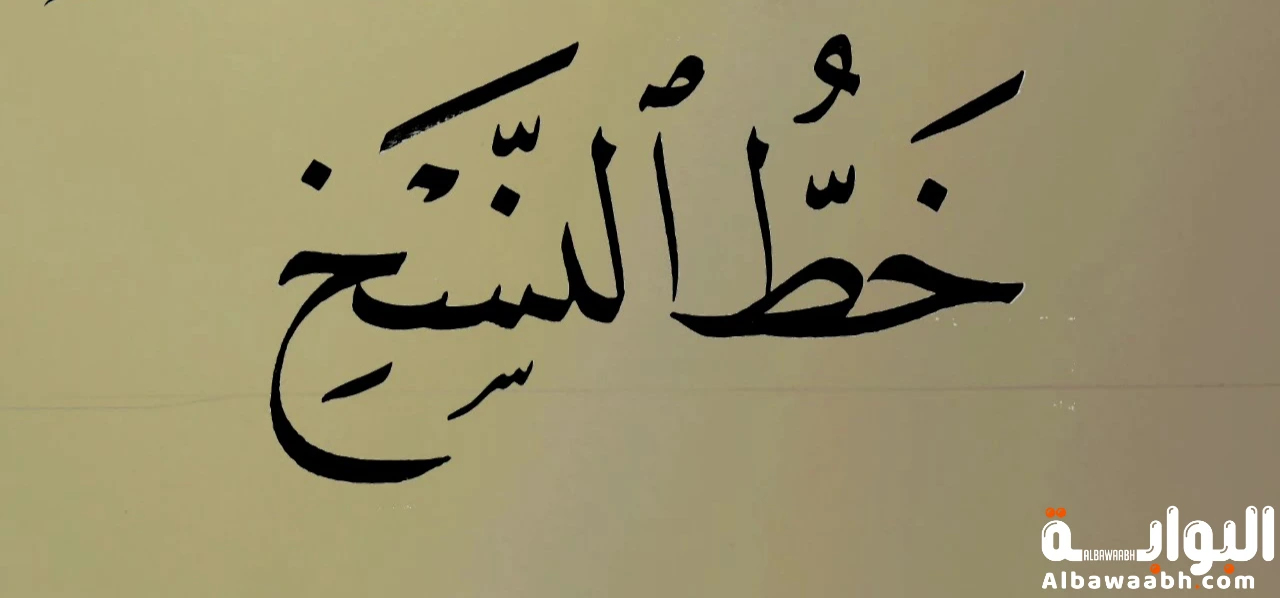 خَطُّ ٱلنَّسْخِ
البوابة
ALBAWAABH
Albawaabh.com